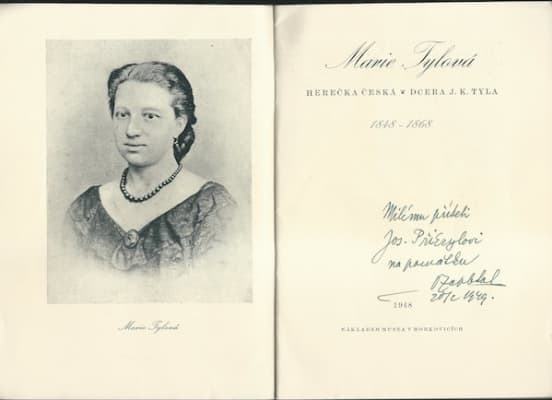 Marie Tylová
Marie Tylová
HEREČKA ČESKÁ * DCERA J. K. TYLA
1848 – 1868
Milému příteli
Jos. Přerylovi
na památku
1949.
1948
NÁKLADEM MUSEA V BORKOVICÍCH